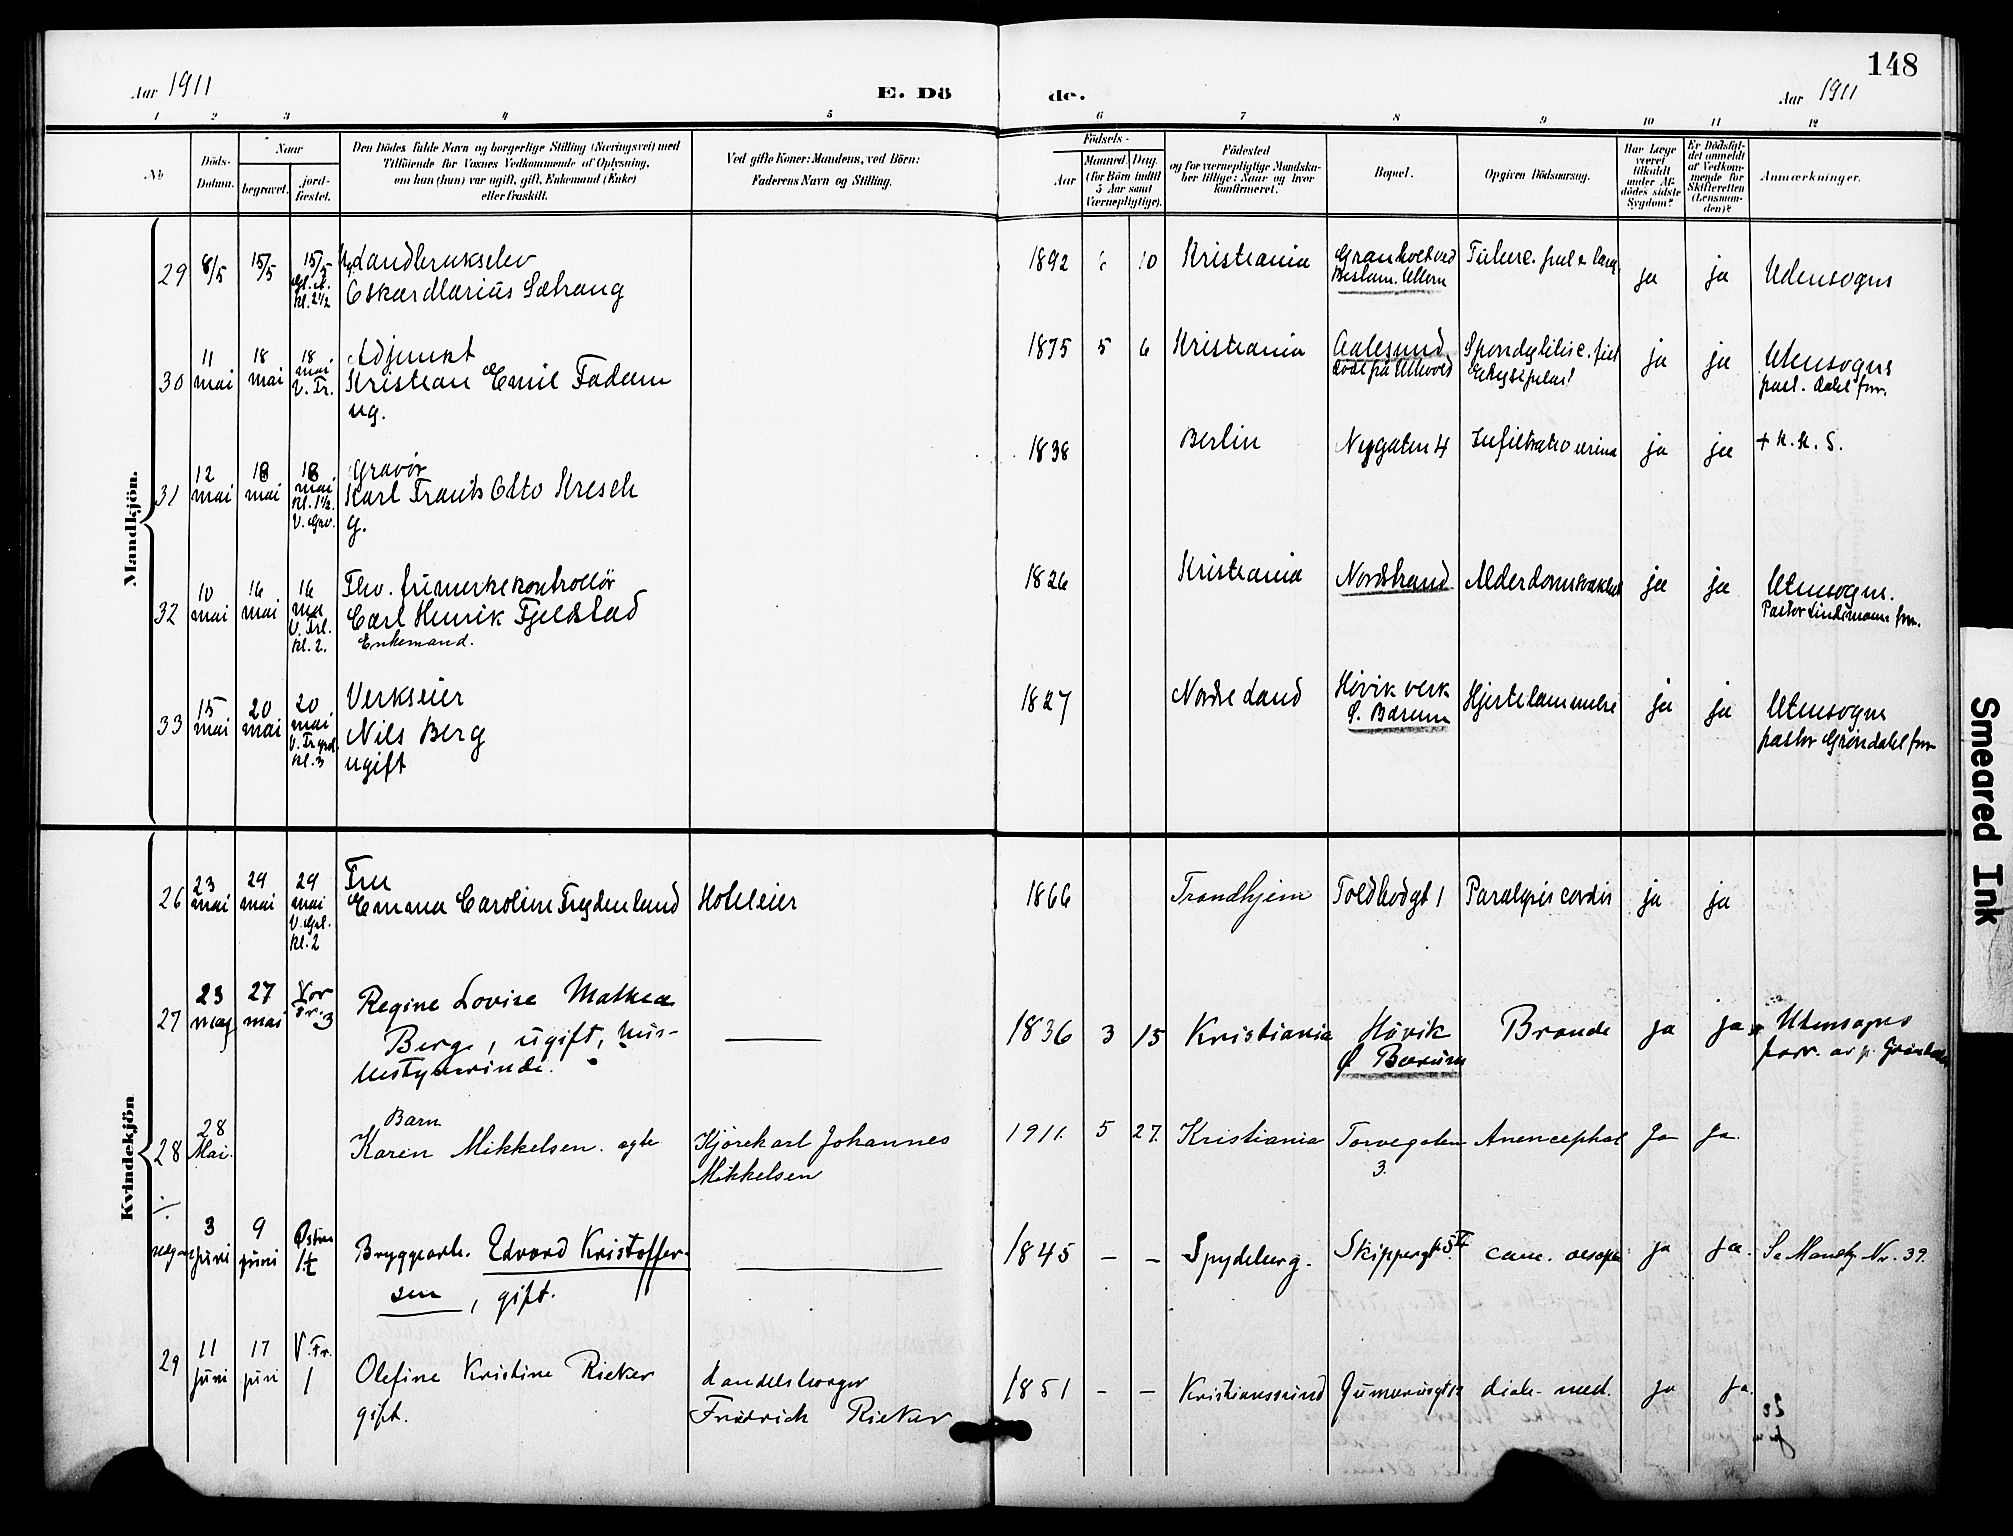 148
Aar 1911
E. Dö
de.
Aar 1911
1 2 3 4 5 6 7 8 9 10 11 12
No
Döds-
Datum.
Naar
begravet.
jord-
fæstet.
Den Dödes fulde Navn og borgerlige Stilling (Næringsvei) med
Tilföiende for Voxnes Vedkommende af Oplysning,
om han (hun) var ugift, gift, Enkemand (Enke)
eller fraskilt.
Ved gifte Koner: Mandens, ved Börn:
Faderens Navn og Stilling.
Födsels-
Aar
Maaned Dag.
(for Börn indtil
5 Aar samt
Værnepligtige).
Födested
og for værnepligtige Mandska-
ber tillige: Naar og hvor
konfirmeret.
Bopæl.
Opgiven Dödsaarsag.
Har Læge
været
tilkaldt
under Af-
dödes sidste
Sygdom?
Er Dödsfal-
det anmeldt
af Vedkom-
mende for
Skifteretten
(Lensman-
den)?
Anmærkninger.
Mandkjön.
29 8/5 15/5 15/5
kl. 2½
Landbrukselev
Oskar Marius Sætrang
1892 6 10 Kristiania
Ullern
ja ja Utensogns
30 11 mai 18 mai 18 mai V. Fr.
Adjunkt
Kristian Emil Fadum
ug.
1875 5 6 Kristiania
Aalesund
død på Ullevold
ja ja Utensogns
past. Dahl forr.
31 12 mai 18 mai 18 mai kl. 1½ V. Grv.
Gravör
Karl Frants Otto Kresch
g.
1838 Berlin Nygaten 4 Infiltratio urina ja ja + K. K. S.
32 10 mai 16 mai 16 mai kl. 2.
Fhv. frimerkekontrollør
Carl Henrik Fjeldstad
Enkemand.
1826 Kristiania Nordstrand Alderdomssvakhet ja ja Utensogns.
Pastor Lindemann forr.
33 15 mai 20 mai 20 mai kl. 3
Verkseier
Nils Berg
ugift
1827 Nordre Land Høvik verk
Ø. Bærum
Hjertelammelse ja ja Utensogns
pastor Grøndahl forr
Kvindekjön
26 23 mai 29 mai 29 mai kl. 2
Fru
Emma Caroline Frydenlund Hoteleier
1866 Trondhjem Toldbodgt 1 Paralysis cordis ja ja
27 23 may 27 mai Vor Fr. 3
Regine Lovise Mathea
Berg, ugift, hus-
bestyrerinde.
1836 3 15 Kristiania Høvik
Ø Bærum
Bronde ja ja Utensogns
forr. av p. Grøndahl
28 28 Mai.
Barn
Karin Mikkelsen. ægte Kjørekarl Johannes
Mikkelsen
1911. 5 27. Kristiania Torvegaten
3.
Anencephal Ja Ja.
÷
3 juni 9 juni Østre
Bryggearb. Edvard Kristoffer-
sen, gift.
1845 – – Spydeberg. Skippergt 5 canc. oesoph ja ja. Se Mandkj. Nr. 39.
29 11 juni 17 juni V. Fr. 1
Olefine Kristine Rieker
gift.
Handelsborger
Friedrich Rieker
1851 – – Kristianssund diab. med. ja ja.
Smeared Ink